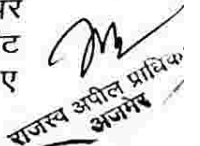 पर
ट
ए
राजस्व अपील प्राधिक
अजमेर